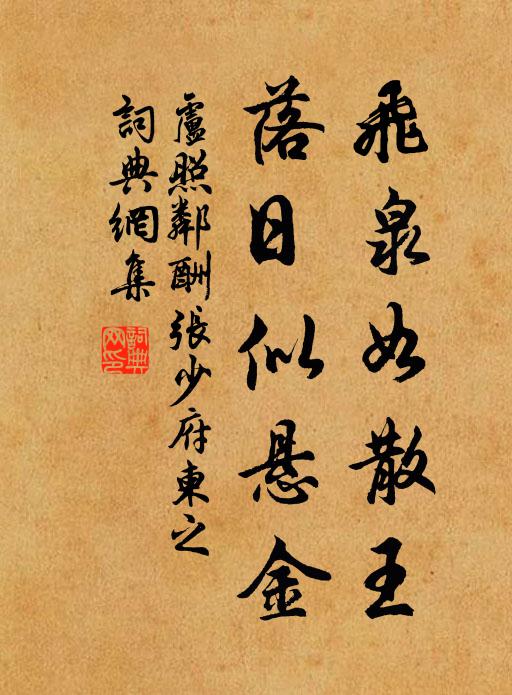 飛泉如散玉
落日似懸金
盧照鄰酬張少府東之
詞典網集
詞典网印